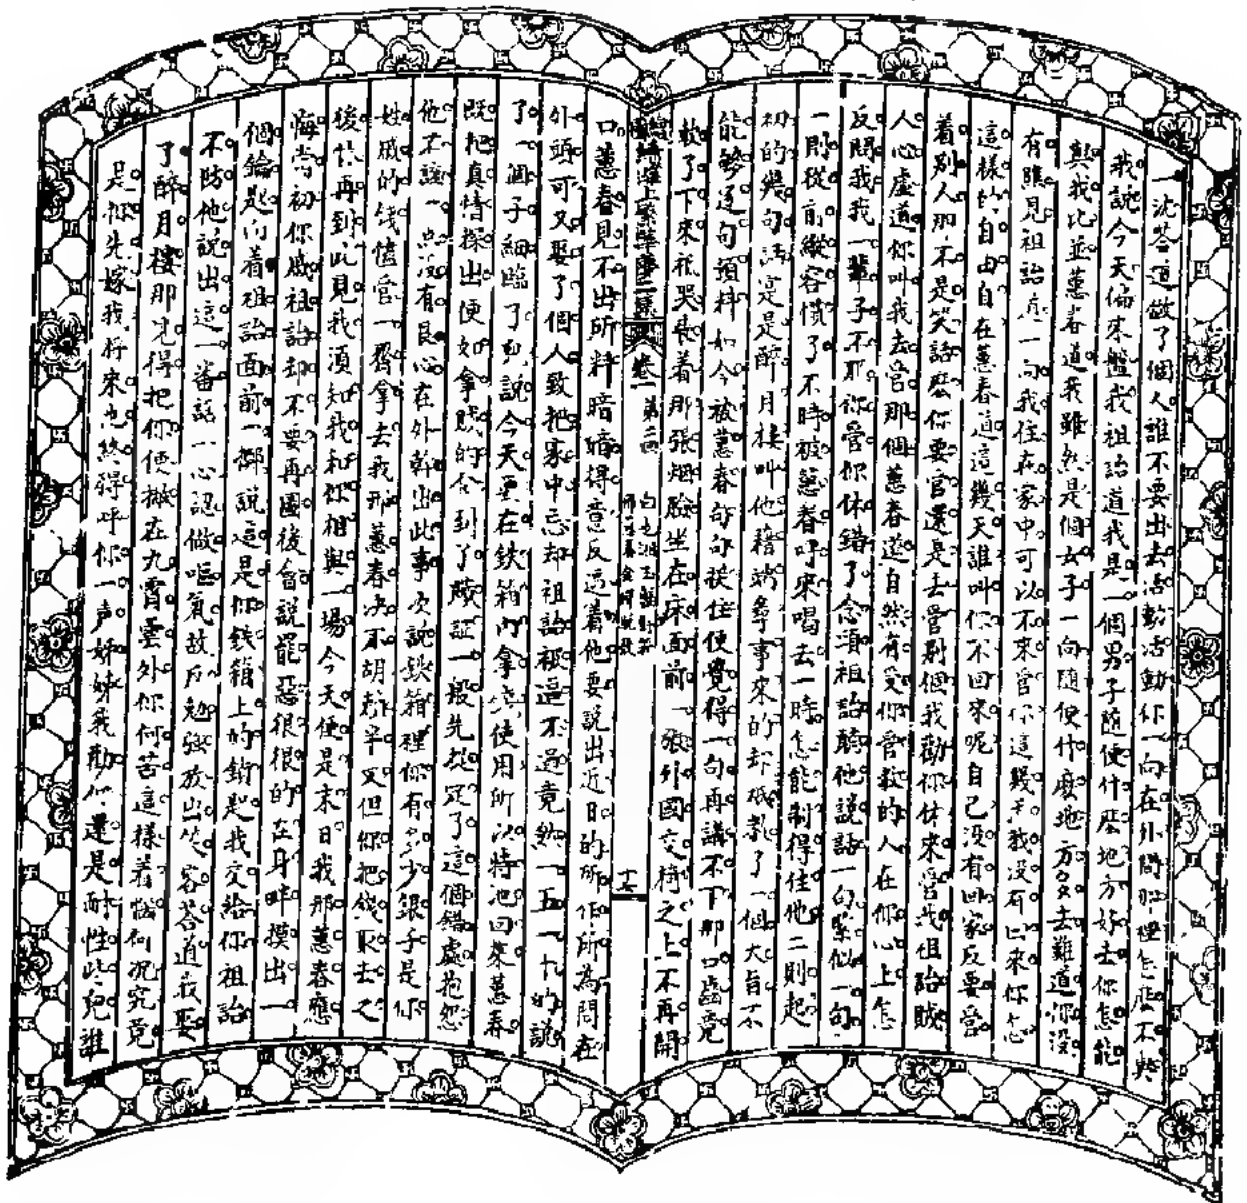 一沈答道做了個人誰不要出去活動活動你一向在外間那裡怎麽不與
我說今天偏來盤我祖詒道我是一個男子隨便什麽地方好去你怎能
與我比並蕙春道我雖然是個女子一向隨便什麽地方多去難道你沒
有瞧見祖詒 一向我住在家中可以不來管你這幾天我沒有回來你怎
這樣的自由自在蕙春道這幾天誰叫你不回來呢自己沒有回家反要管
着別人那不是笑話麽你要管還是去管別個我勸你休來管我祖詒賊
人心虛道你叫我去管那個蕙春道自然有受你管教的人在你心上怎
反問我我一輩子不耶你管你休錯了念頭祖詒聽他說話一句緊似一句
一則從前縱容慣了不時被蕙春呼來喝去一時怎能制得住他二則起
初的幾句話 是醉月樓叫他藉端尋事來的却祇教了一個大旨不
能夠逐句預料如今被蕙春句句捉住便覺得一句再講不下那口齒竟
軟了下來祇哭喪着那張烟臉坐在床面前一張外國交椅之上不再開
海上繁華夢二集 卷一 第二回 十七
口蕙春見不出所料暗暗得意反逼着他要說出近日的所作所爲問在
外頭可又娶了個人致把家中忘却祖詒被逼不過竟然一五一十的說
了一個子細臨了 說今天要在鉄箱內拿 使用所以特地回來蕙春
既把真情探出便如拿賊的合到了贜証一般先捉定了這個錯處抱怨
他不該一點沒有良心在外幹出此事次說鉄箱裡你有多少銀子是你
姓戚的錢儘管一齊拿去我那蕙春决不胡賴半文但你把錢取去之
後休再到此見我須知我和你相與一場今天便是末日我那蕙春應
悔當初你戚祖詒却不要再圖後會說罷惡很很的在身畔摸出一
個鑰匙向着祖詒面前一擲說這是你鉄箱上的鑰匙我交給你祖詒
不防他說出這一番話一心認做嘔氣故反勉强放出笑容答道我娶
了醉月樓那見得把你便撇在九霄雲外你何苦這樣着惱何况究竟
是你先嫁我將來也終得呼你一声姊姊我勸你還是耐性些兒誰